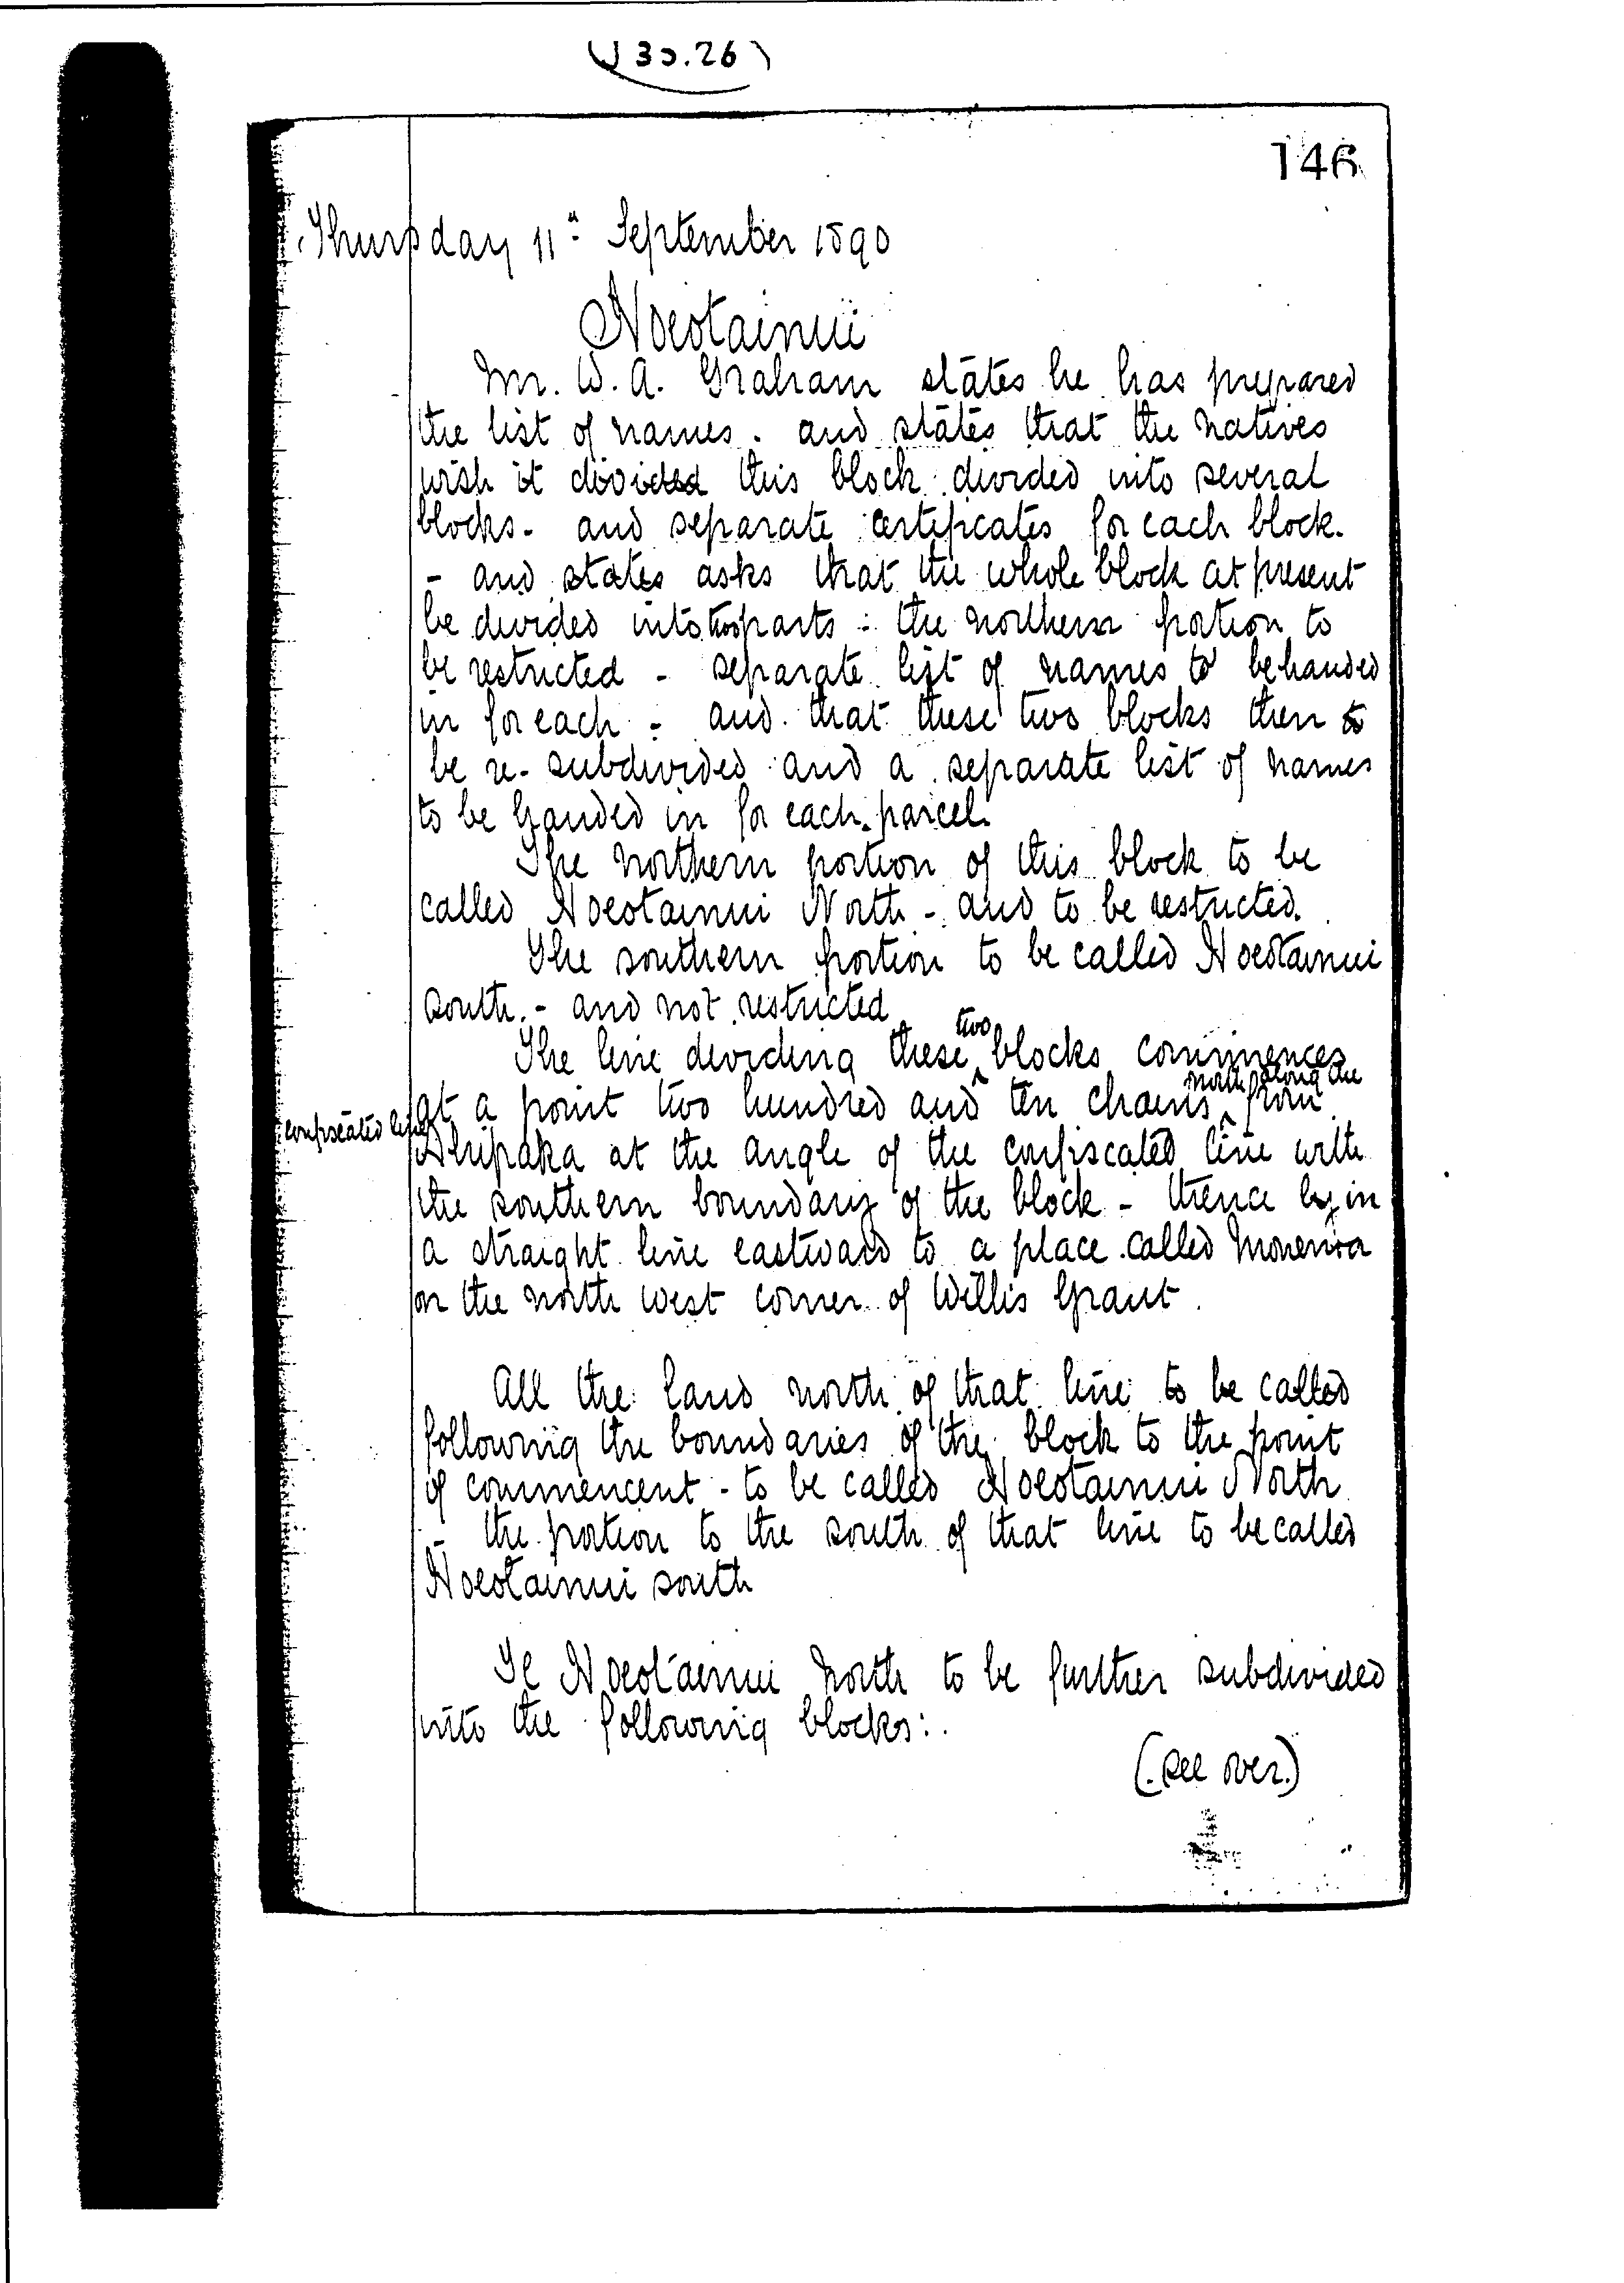 (W 30.26)
146
Thursday 11th September 1890
Hoeotainui
Mr. W. A. Graham states he has prepared
the list of names. and states that the natives
wish it divided this block divided into several
blocks - and separate certificates for each block.
- and states asks that the whole block at present
be divided into two parts : the northern portion to
be restricted - separate list of names to be handed
in for each - and that these two blocks then to
be re-subdivided and a separate list of names
to be handed in for each parcel.
The northern portion of this block to be
called Hoeotainui North - and to be restricted.
The southern portion to be called Hoeotainui
south. - and not restricted
two
The line dividing these blocks commences
north along the
at a point two hundred and ten chains from
confiscated line
at the angle of the confiscated line with
the southern boundary of the block - thence by in
a straight line eastward to a place called
on the north west corner of Willis Grant.
All the land north of that line to be called
following the boundaries of the block to the point
of commencent - to be called Hoeotainui North
- the portion to the south of that line to be called
Hoeotainui south
Hoeotainui north to be further subdivided
into the following blocks:
(see over.)